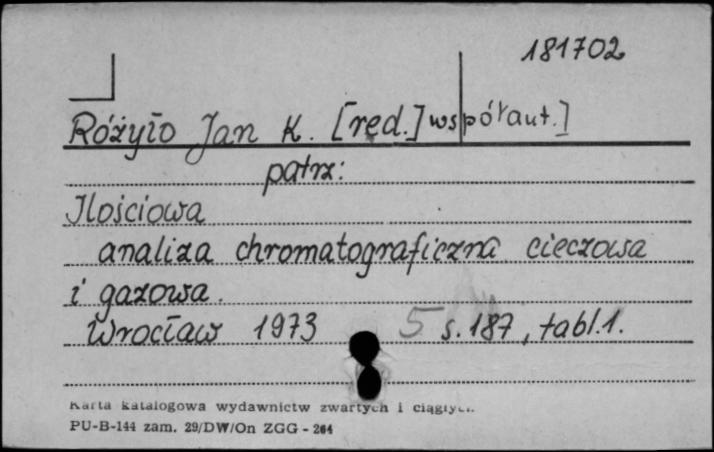 181702
Różyło Jan K. [red.] współaut.]
patrz:
Ilościowa
analiza chromatograficzna cieczowa
i gazowa.
Wrocław 1973 5 s. 187, tabl. 1.
Karta katalogowa wydawnictw zwartych i ciągłych.
PU-B-144 zam. 29/DW/On ZGG - 264